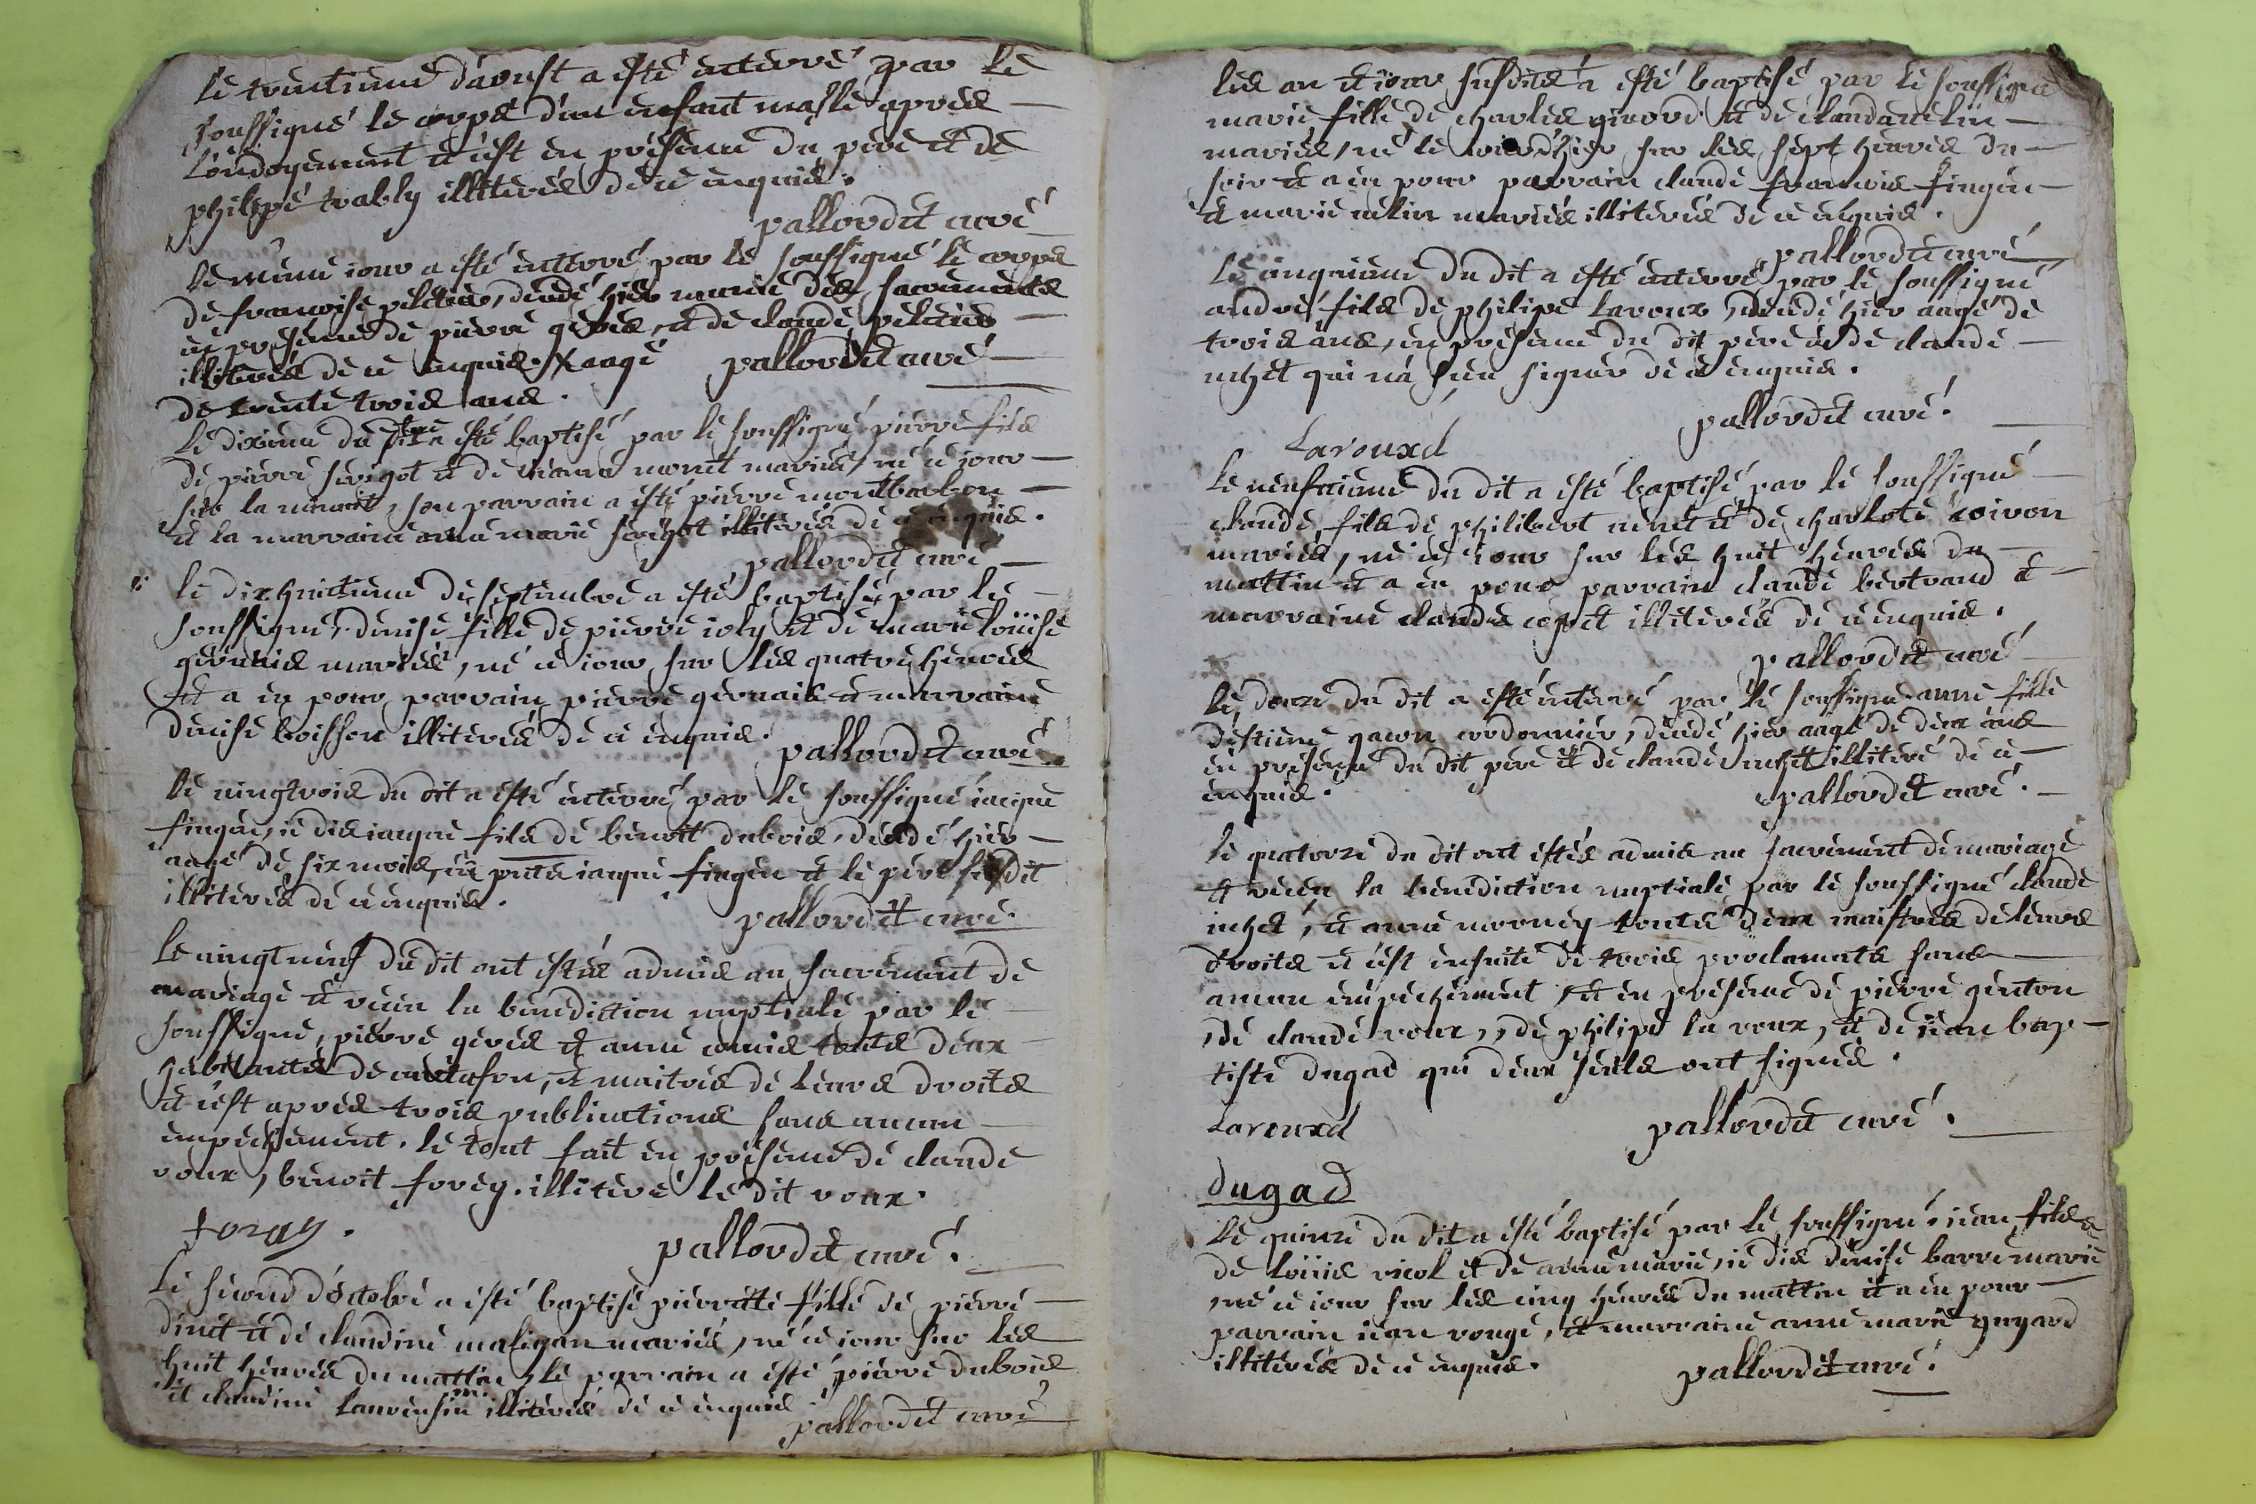 le trentieme daoust a esté enterré par le
soussigné le corps d'un enfant masle apres
l'ondoyement et c'est en présence du pere et de
philipe trably illiterés de ce enquis.
pallordet curé
le même iour a esté enterré par le soussigné le corps
de francoise peletier, decedé hier munie des sacrements
en presence de pierre geves, et de claude peletier
illiterés de ce enquis. X aagé pallordet curé
de trente trois ans.
le dixieme du dit a esté baptisé par le soussigné pierre fils
de pierre serigot et de monet mariés, né ce iour
sur la minuit, son parrain a esté pierre montbarbon
et la marraine anne marie serigot illiterés de ce enquis.
pallordet curé
le dixhuitieme de septembre a esté baptisé par le
soussigné, denise fille de pierre ioly et de marie loüise
gervais mariés, né ce iour sur les quatre heures
et a eu pour parrain pierre gervais et marraine
denise boisson illiterés de ce enquis.
pallordet curé
le vingtrois du dit a esté enterré par le soussigné iacque
fingue, ie dis iacque fils de benoit dubois, decedé hier
aagé de six mois, en pnce iacque fingue et le pere susdit
illiterés de ce enquis.
pallordet curé.
le vingtneuf du dit ont estés admis au sacrement de
mariage et receu la benediction nuptiale par le
soussigné, pierre geves et anne touts deux
habitants de, et maitres de leurs droits
et c'est apres trois publications sans aucun
empechement. le tout fait en présence de claude
roux, benoit forey. illiteré le dit roux.
foray.
pallordet curé.
le second d'octobre a esté baptisé pierrette fille de pierre
dinet et de claudine maligan mariés, né ce iour sur les
huit heures du mattin, le parrain a esté pierre dubois
et claudine laurensin illiterés de ce enquis
pallordet curé
les an et iour susdits a esté baptisé par le soussigné
marie fille de charles girord et de claudanelin
mariés, né le iour d'hier sur les sept heures du
soir et a eu pour parrain claude francois fingue
et marie nelin mariés illiterés de ce enquis.
pallordet curé
le cinquieme du dit a esté enterré par le soussigné
andre, fils de philipe laroux, decedé hier aagé de
trois ans, en présence du dit pere et de claude
inhet qui n'a sceu signer de ce enquis.
pallordet curé.
Larouxd
le neufvieme du dit a esté baptisé par le soussigné
claude, fils de philibert nenet et de charlote coivon
mariés, né ce iour sur les huit heures du
mattin et a eu pour parrain claude bertrand et
marraine claude illiterés de ce enquis.
pallordet curé
le douze du dit a esté enterré par le soussigné anne fille
d'estiene gacon cordonnier, decedé hier aagé de deux ans
en présence du dit pere et de claude inhet illiteré de ce
enquis.
pallordet curé.
le quatorze du dit ont estés admis au sacrement de mariage
et receu la benediction nuptiale par le soussigné claude
inhet, et anne morney touts deux maistres de leurs
droits et c'est ensuite de trois proclamats sans
aucun empechement, et en présence de pierre genton
, de claude roux,, de philipe la roux, et de iean bap
tiste dugad qui deux seuls ont signés.
Larouxd
pallordet curé.
dugad
le quinze du dit a esté baptisé par le soussigné, iean fils
de loüis nicol et de anne marie, ie dis denise barre mariés
, né ce iour sur les cinq heures du mattin et a eu pour
parrain iean rouge, et marraine anne marie guyard
illiterés de ce enquis.
pallordet curé.